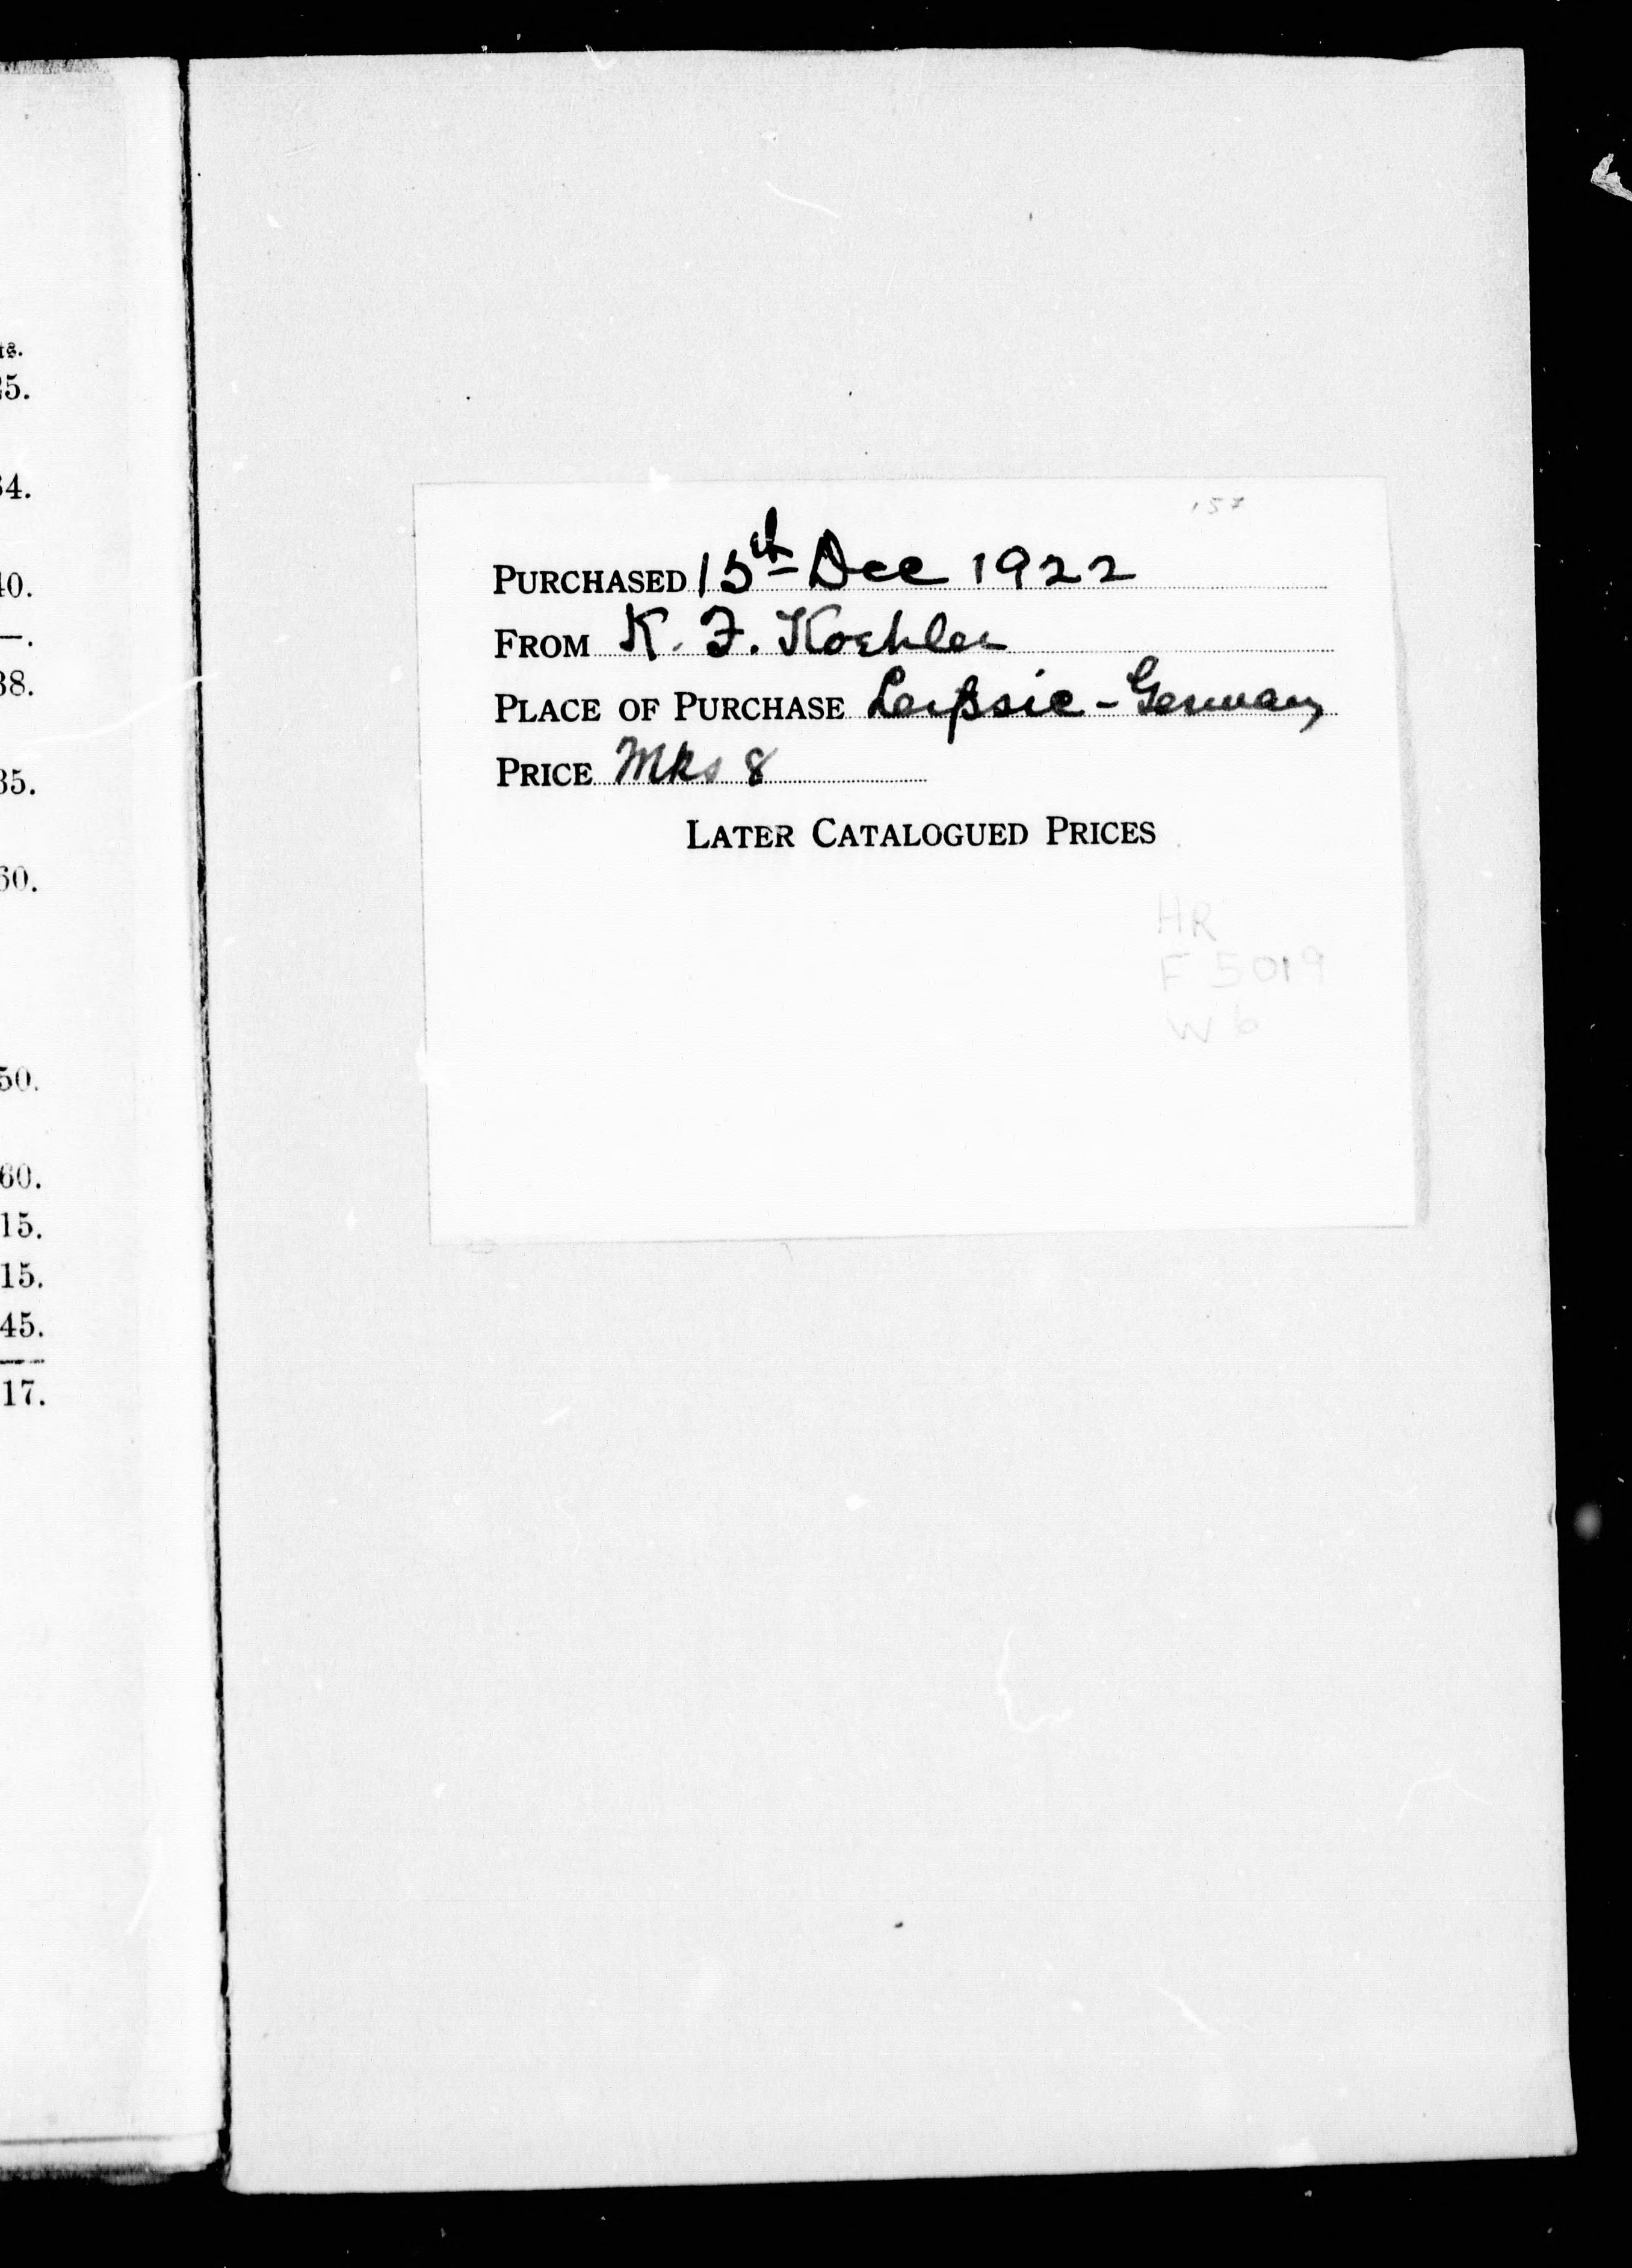 ts.
25.
34.
40.
—.
38.
35.
60.
50.
60.
15.
15.
45.
17.
157
PURCHASED 15th Dec 1922
FROM K. F. Koehler
PLACE OF PURCHASE Leipsic - Germany
PRICE Mks 8
LATER CATALOGUED PRICES
HR
F 5019
W 6